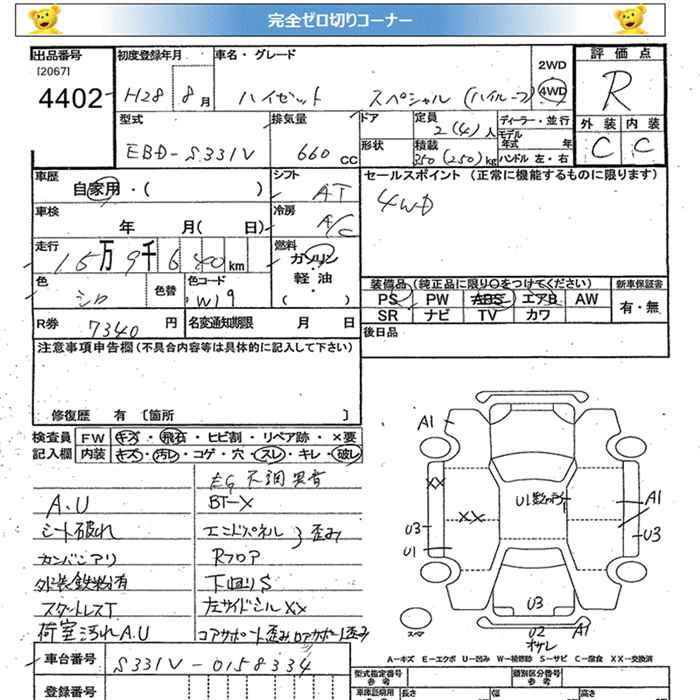 完全ゼロ切りコーナー
出品番号
[2067]
4402
初度登録年月
H28 8月
車名・グレード
ハイゼット スペシャル (ハイルーフ)
2WD
4WD
評価点
R
型式
EBD-S331V
排気量
660 cc
ドア
形状
定員
2(4)人
積載
350(250)kg
ディーラー・並行
モデル
年式 年
ハンドル 左・右
外装 内装
C C
車歴
自家用・( )
シフト
AT
セールスポイント (正常に機能するものに限ります)
4WD
車検
年 月( 日)
冷房
A/C
走行
15万9千640km
燃料
ガソリン
軽油
( )
色
シロ
色替
色コード
W19
装備品(純正品に限り○をつけてください)
新車保証書
PS PW ABS エアB AW
SR ナビ TV カワ
有・無
R券 7340円
名変通知期限 月 日
後日品
注意事項申告欄(不具合内容等は具体的に記入して下さい)
修復歴 有〔箇所 〕
検査員
記入欄
FW キズ・飛石・ヒビ割・リペア跡・×要
内装 キズ・汚レ・コゲ・穴・スレ・キレ・破レ
EG不調異音
A.U BT-X
シート破れ エンドパネル 歪み
カンバンアリ Rフロア
外装鉄粉有 下廻りS
スタットレスT 左サイドシルXX
荷室汚れA.U コアサポート歪み ロアサポート歪み
A1
XX
XX
U1
A1
U3
U1
U3
U3
スペア
U2
オサレ
A1
A-キズ E-エクボ U-凹み W-補修跡 S-サビ C-腐食 XX-交換済
車台番号 S331V-0158334
登録番号
型式指定番号
参考
類別区分番号
参考
車庫証明用
参考
長さ
幅
高さ